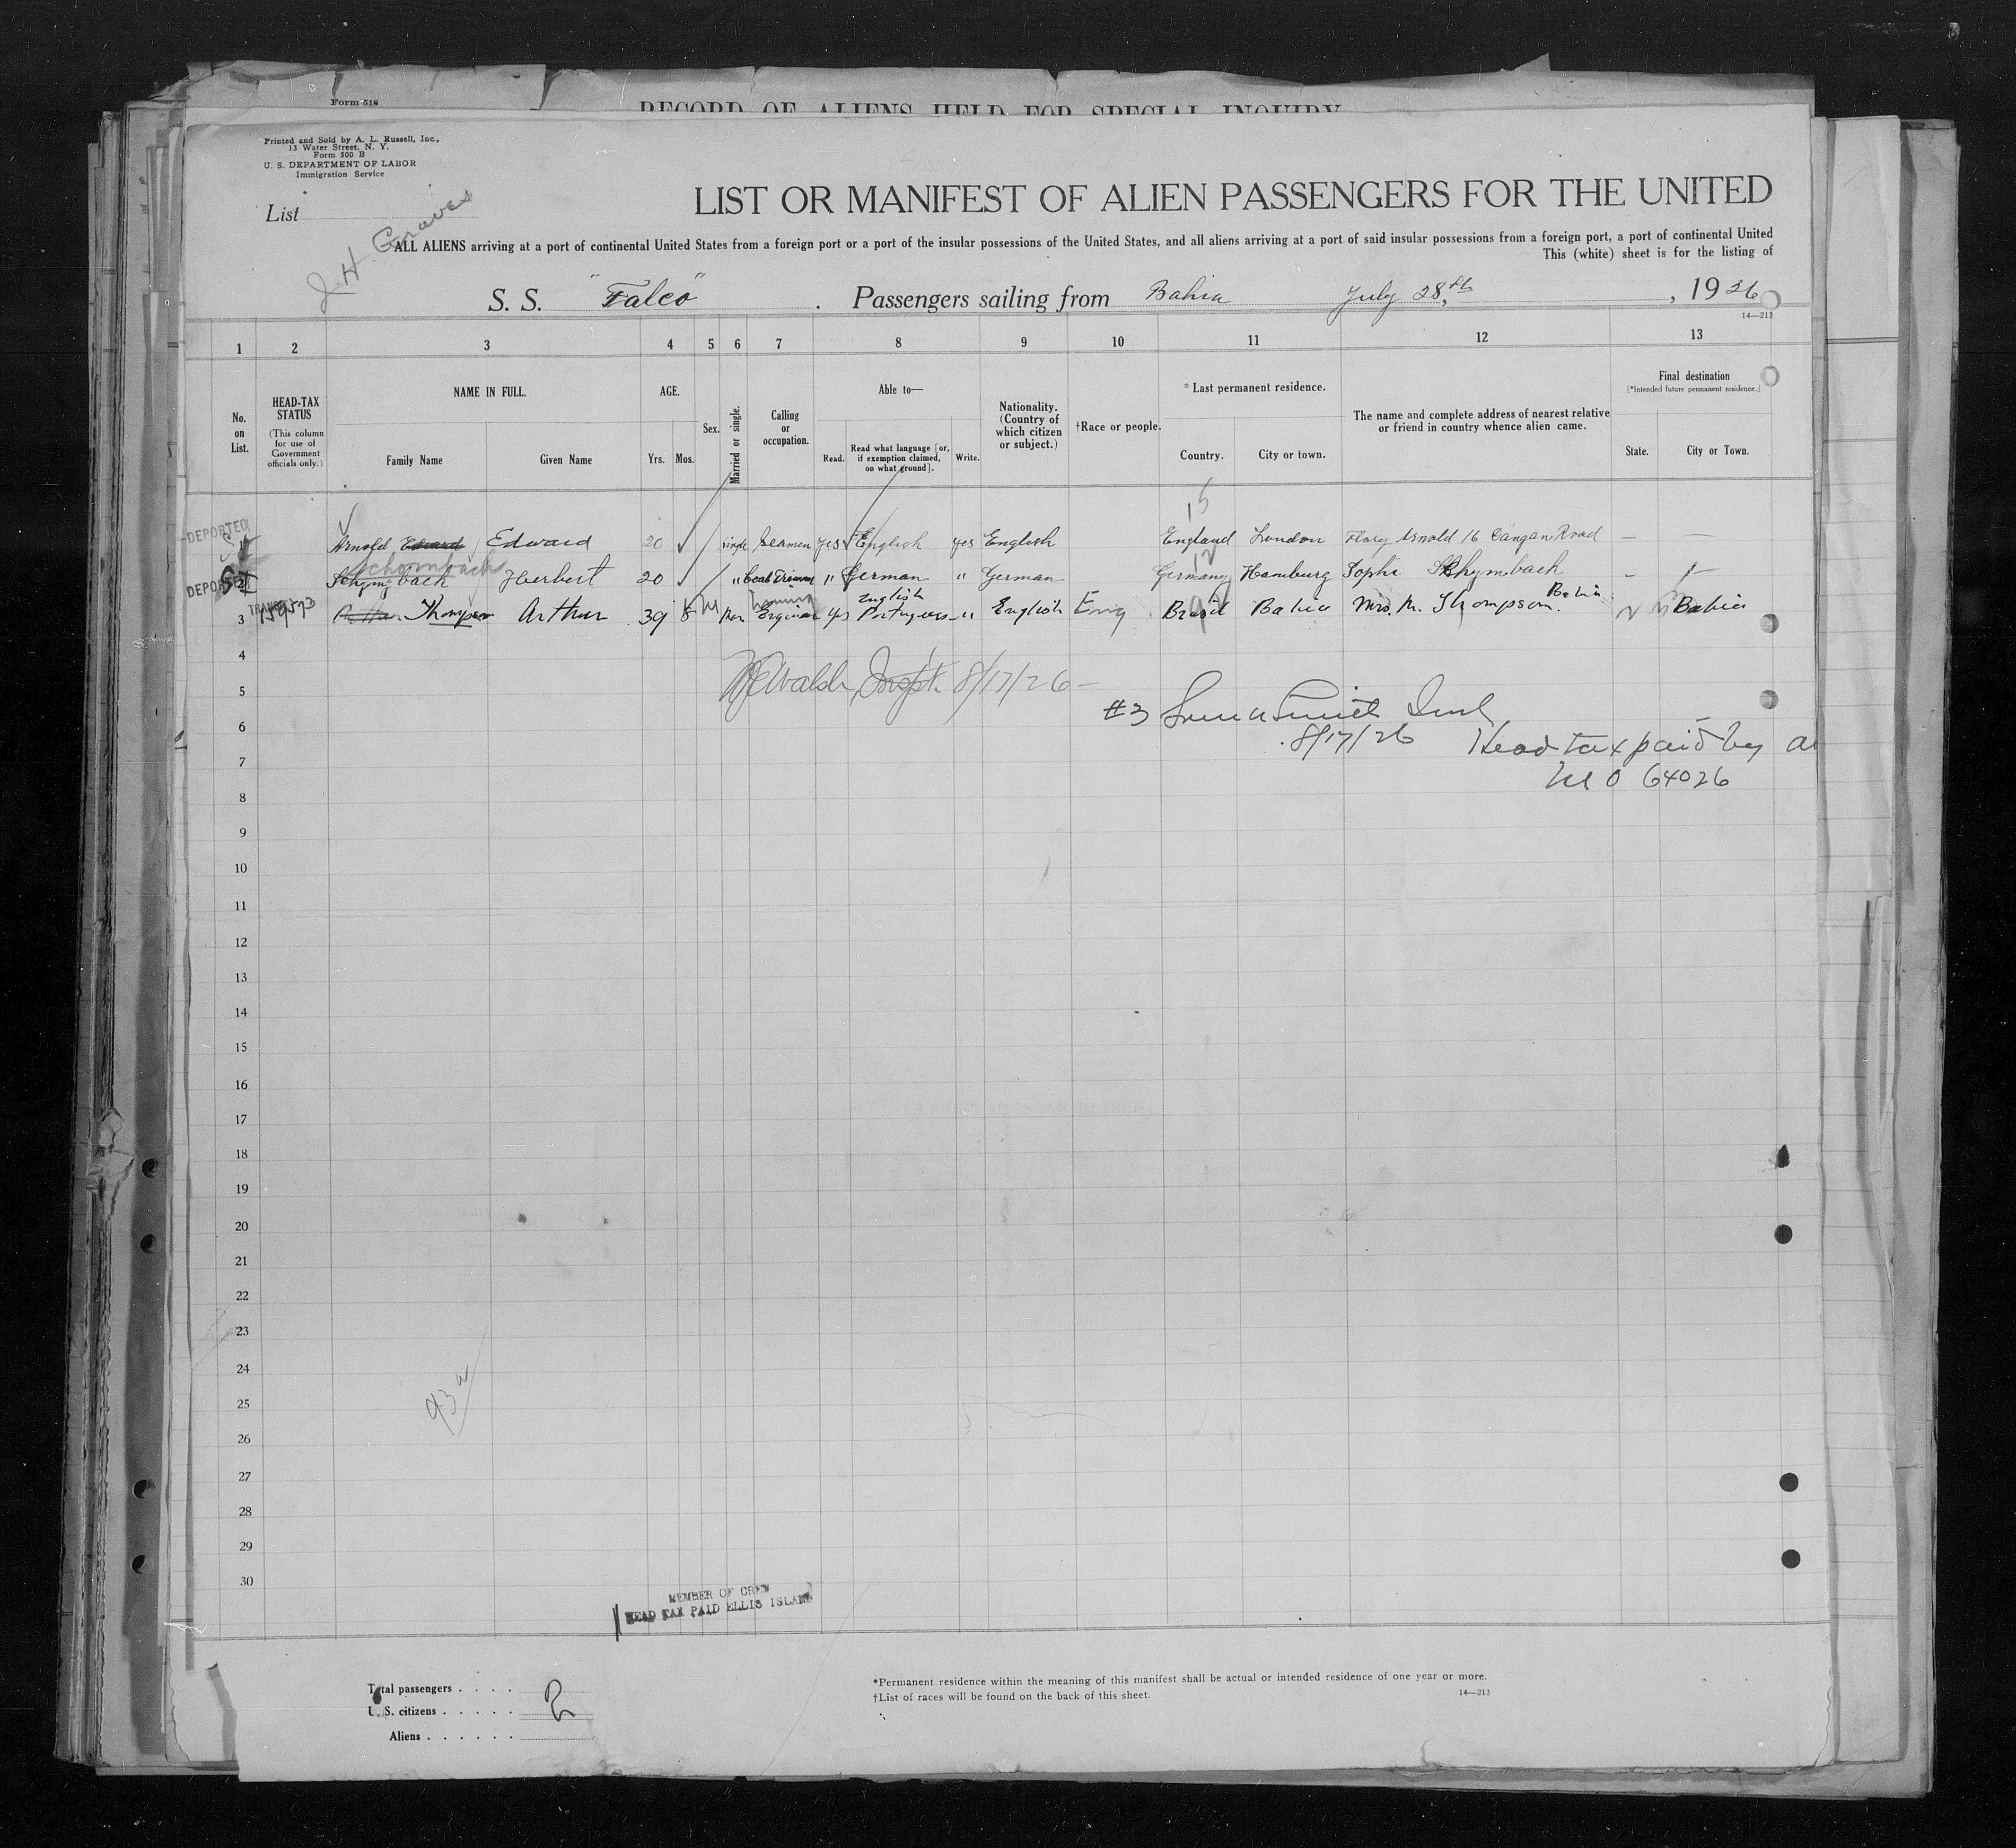 Form 518
RECORD OF ALIENS HELD FOR SPECIAL INQUIRY
Printed and Sold by A. L. Russell, Inc.,
13 Water Street, N. Y.
Form 500 B
U. S. DEPARTMENT OF LABOR
Immigration Service
List
J. H. Graves
LIST OR MANIFEST OF ALIEN PASSENGERS FOR THE UNITED
ALL ALIENS arriving at a port of continental United States from a foreign port or a port of the insular possessions of the United States, and all aliens arriving at a port of said insular possessions from a foreign port, a port of continental United
This (white) sheet is for the listing of
S. S. "Falco". Passengers sailing from Bahia July 28th, 1926
14—213
1 2 3 4 5 6 7 8 9 10 11 12 13
No. on List.
HEAD-TAX STATUS
(This column for use of Government officials only.)
NAME IN FULL.
Family Name Given Name
AGE.
Yrs. Mos.
Sex.
Married or single.
Calling or occupation.
Able to—
Read. Read what language [or, if exemption claimed, on what ground]. Write.
Nationality. (Country of which citizen or subject.)
†Race or people.
*Last permanent residence.
Country. City or town.
The name and complete address of nearest relative or friend in country whence alien came.
Final destination
[*Intended future permanent residence.]
State. City or Town.
15
DEPORTED
1 Arnold Edward Edward 20 single Seamen yes English yes English England London Flory Arnold 16 Cangan Road — —
Schombach 12
DEPORTED
2 Schymgbach Herbert 20 " Coal Trimmer " German " German Germany Hamburg Sophi Schymbach —
English Bahia
TRANSIT
3 Thompson Arthur 39 8 M Mar Enginear yes Portuguese " English Eng Brasil Bahia Mrs. M. Thompson. Bahia
4
5 Walsh, Inspt. 8/17/26 —
#3
6 8/17/26 Head tax paid by
7 64026
8
9
10
11
12
13
14
15
16
17
18
19
20
21
22
23
24
25
26
27
28
29
30
MEMBER OF CREW
HEAD TAX PAID ELLIS ISLAND
Total passengers . . . .
U. S. citizens . . . . . 2
Aliens . . . . . .
*Permanent residence within the meaning of this manifest shall be actual or intended residence of one year or more.
†List of races will be found on the back of this sheet.
14—213